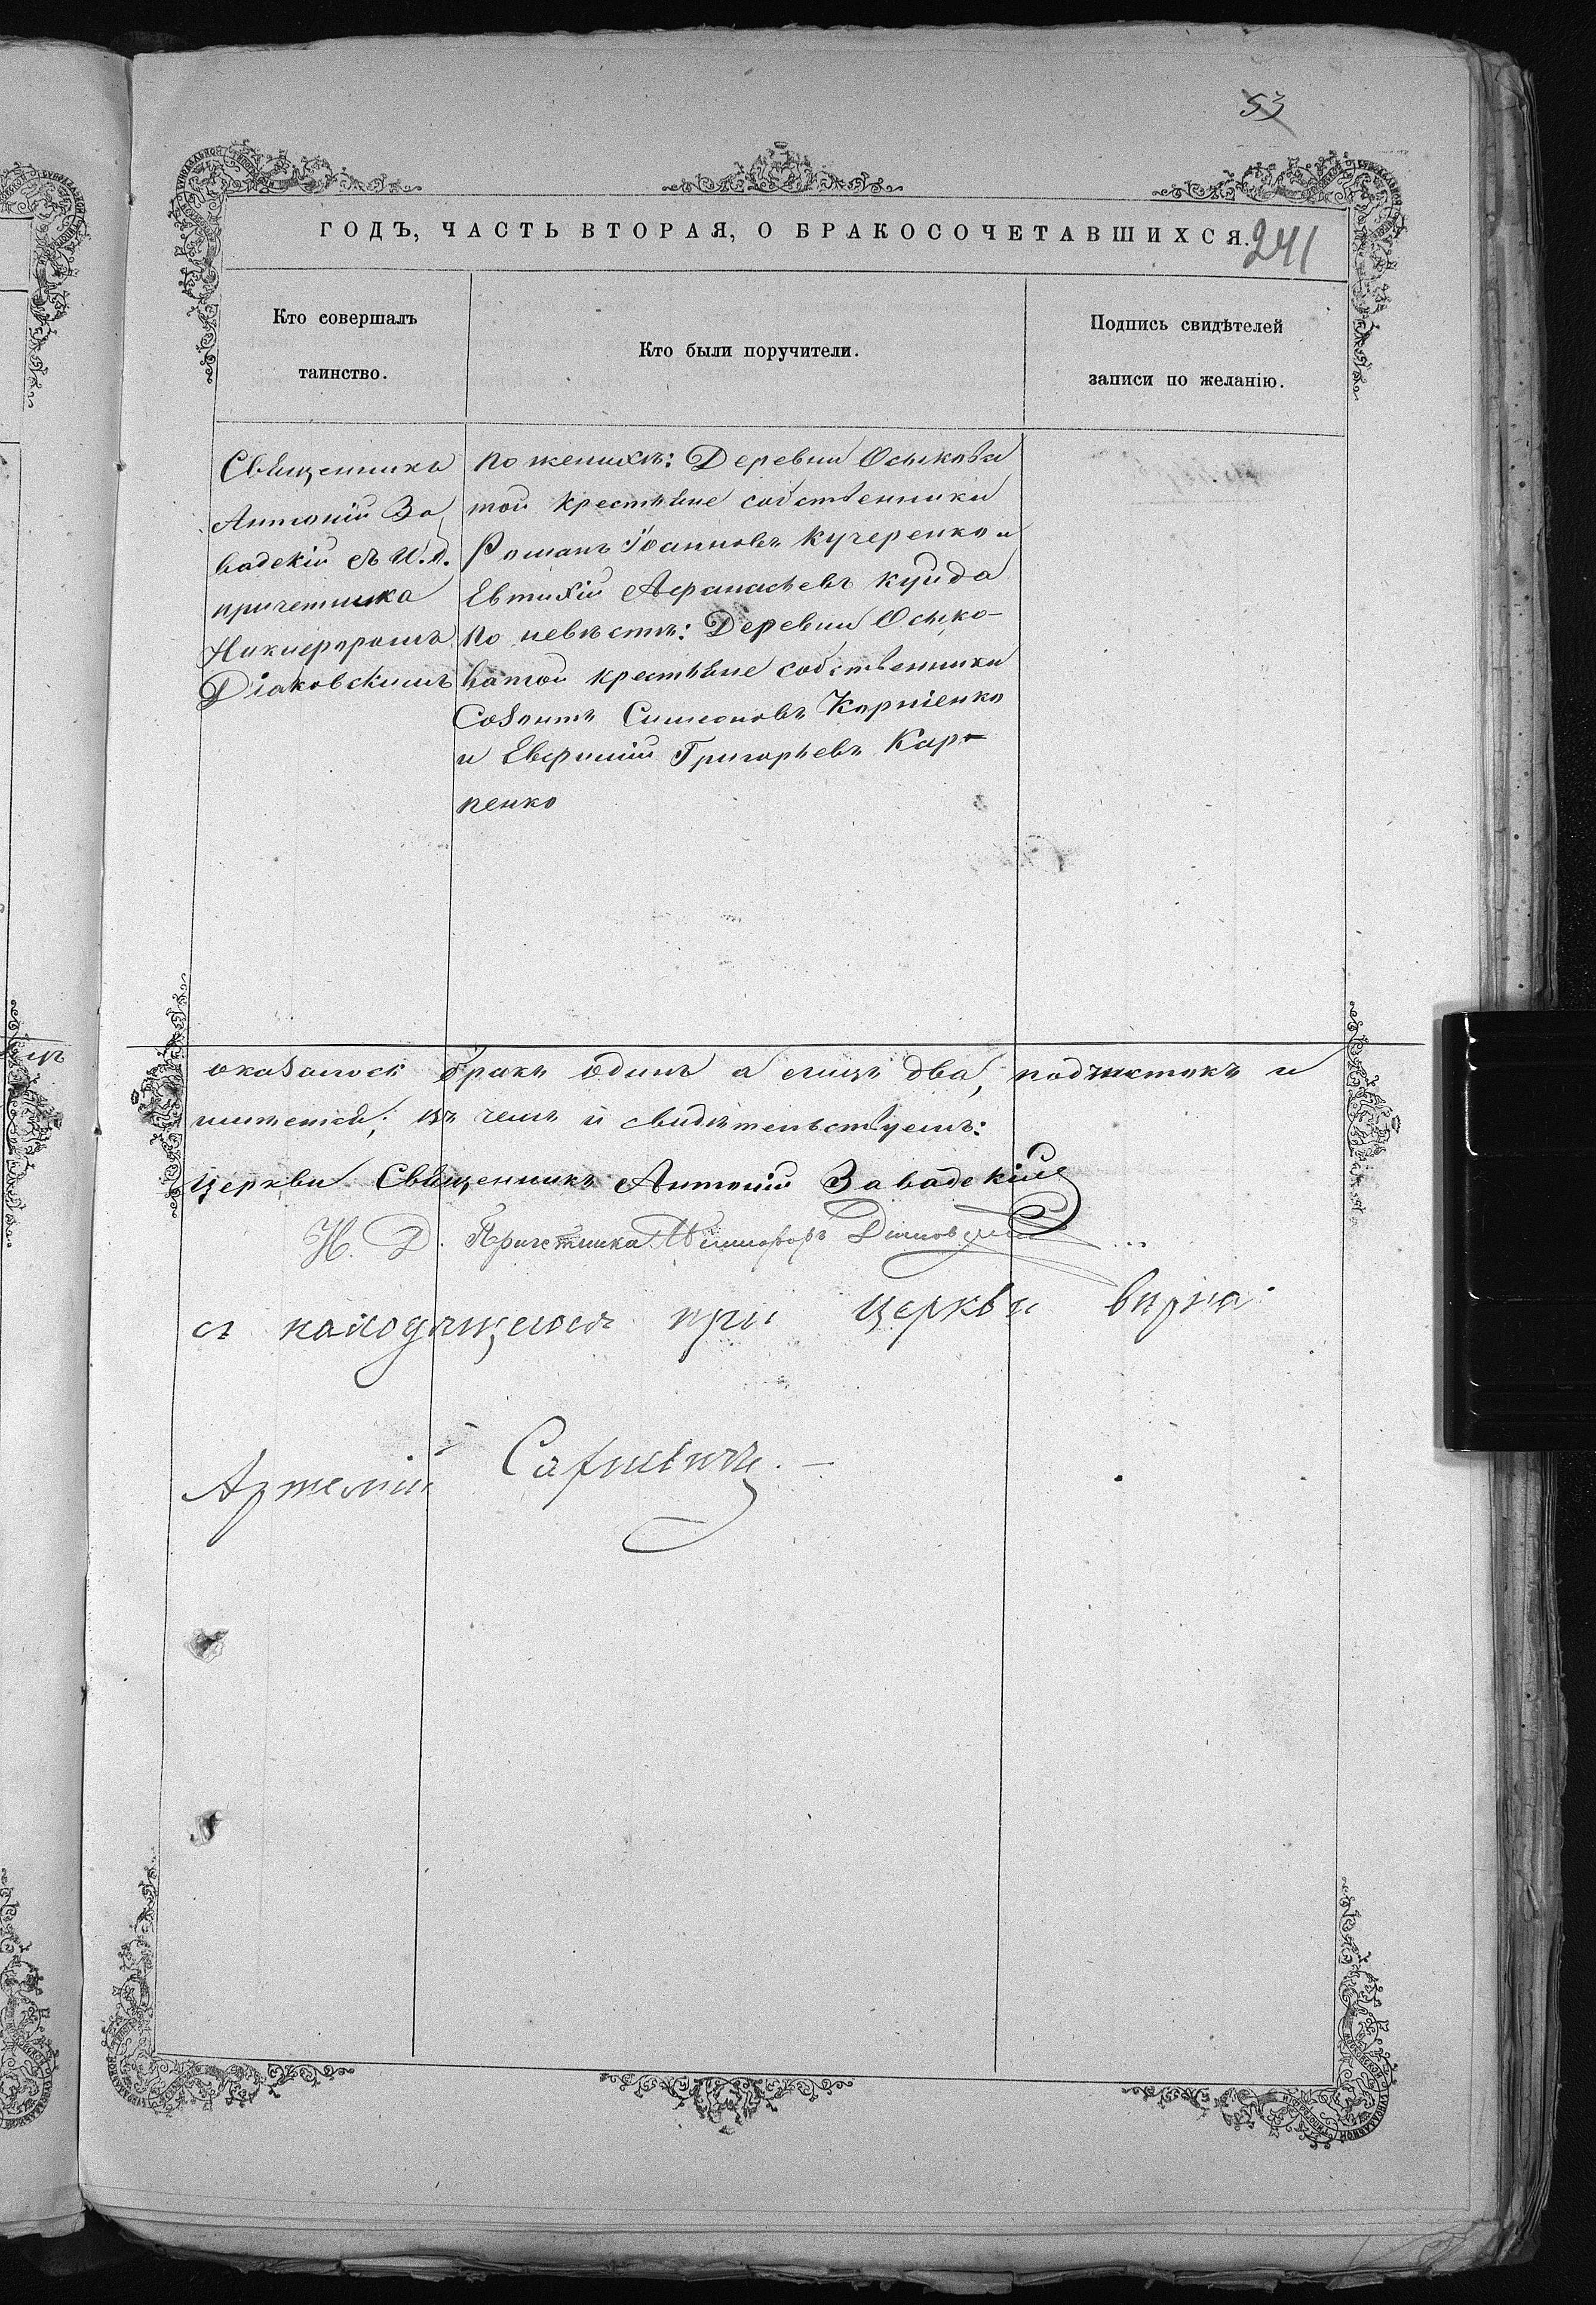 53
ГОДЪ, ЧАСТЬ ВТОРАЯ, О БРАКОСОЧЕТАВШИХСЯ.
241
Кто совершалъ
таинство.
Кто были поручители.
Подпись свидѣтелей
записи по желанію.
Священникъ
Антоній За
вадскій съ И.д.
причетника
Никифоромъ
Діаковскимъ
По женихѣ: Деревни Осыкова
той крестьяне собственники
Романъ Іоанновъ Кучеренко и
Евтихій Афанасьевъ Куйда
По невѣстѣ: Деревни Осыко-
ватой крестьяне собственники
Созонтъ Симеоновъ Карпенко
и Евфимій Григорьевъ Кар-
пенко
оказалось бракъ одинъ а лицъ два, подчистокъ и
въ чемъ и свидѣтельствуемъ:
Церкви Священникъ Антоній Завадскій
И. Д. Причетника Никифоръ Діаковскій
съ находящеюся при церкви вѣрна
Артемій